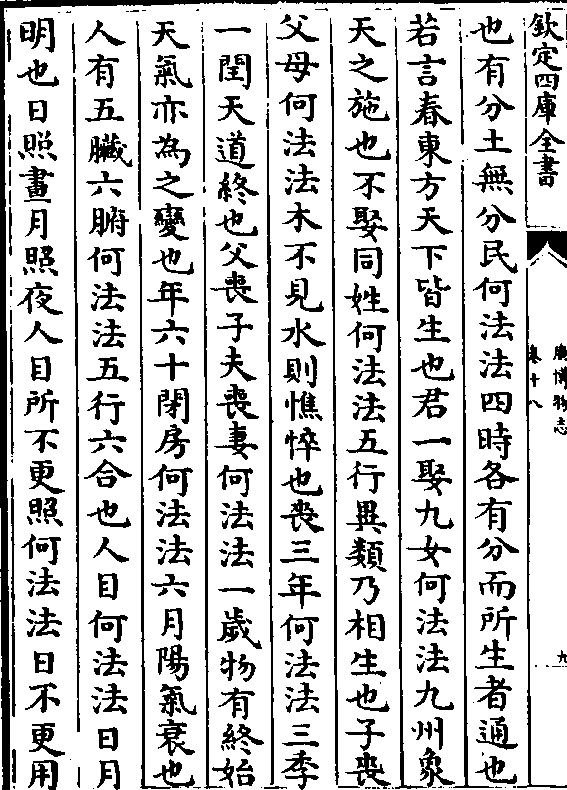 欽定四庫全書
廣博物志
卷十八
九
也有分土無分民何法法四時各有分而所生者通也
若言春東方天下皆生也君一娶九女何法法九州象
天之施也不娶同姓何法法五行異類乃相生也子喪
父母何法法木不見水則憔悴也喪三年何法法三季
一閏天道終也父喪子夫喪妻何法法一歲物有終始
天氣亦為之變也年六十閉房何法法六月陽氣衰也
人有五臟六腑何法法五行六合也人目何法法日月
明也日照晝月照夜人目所不更照何法法日不更用